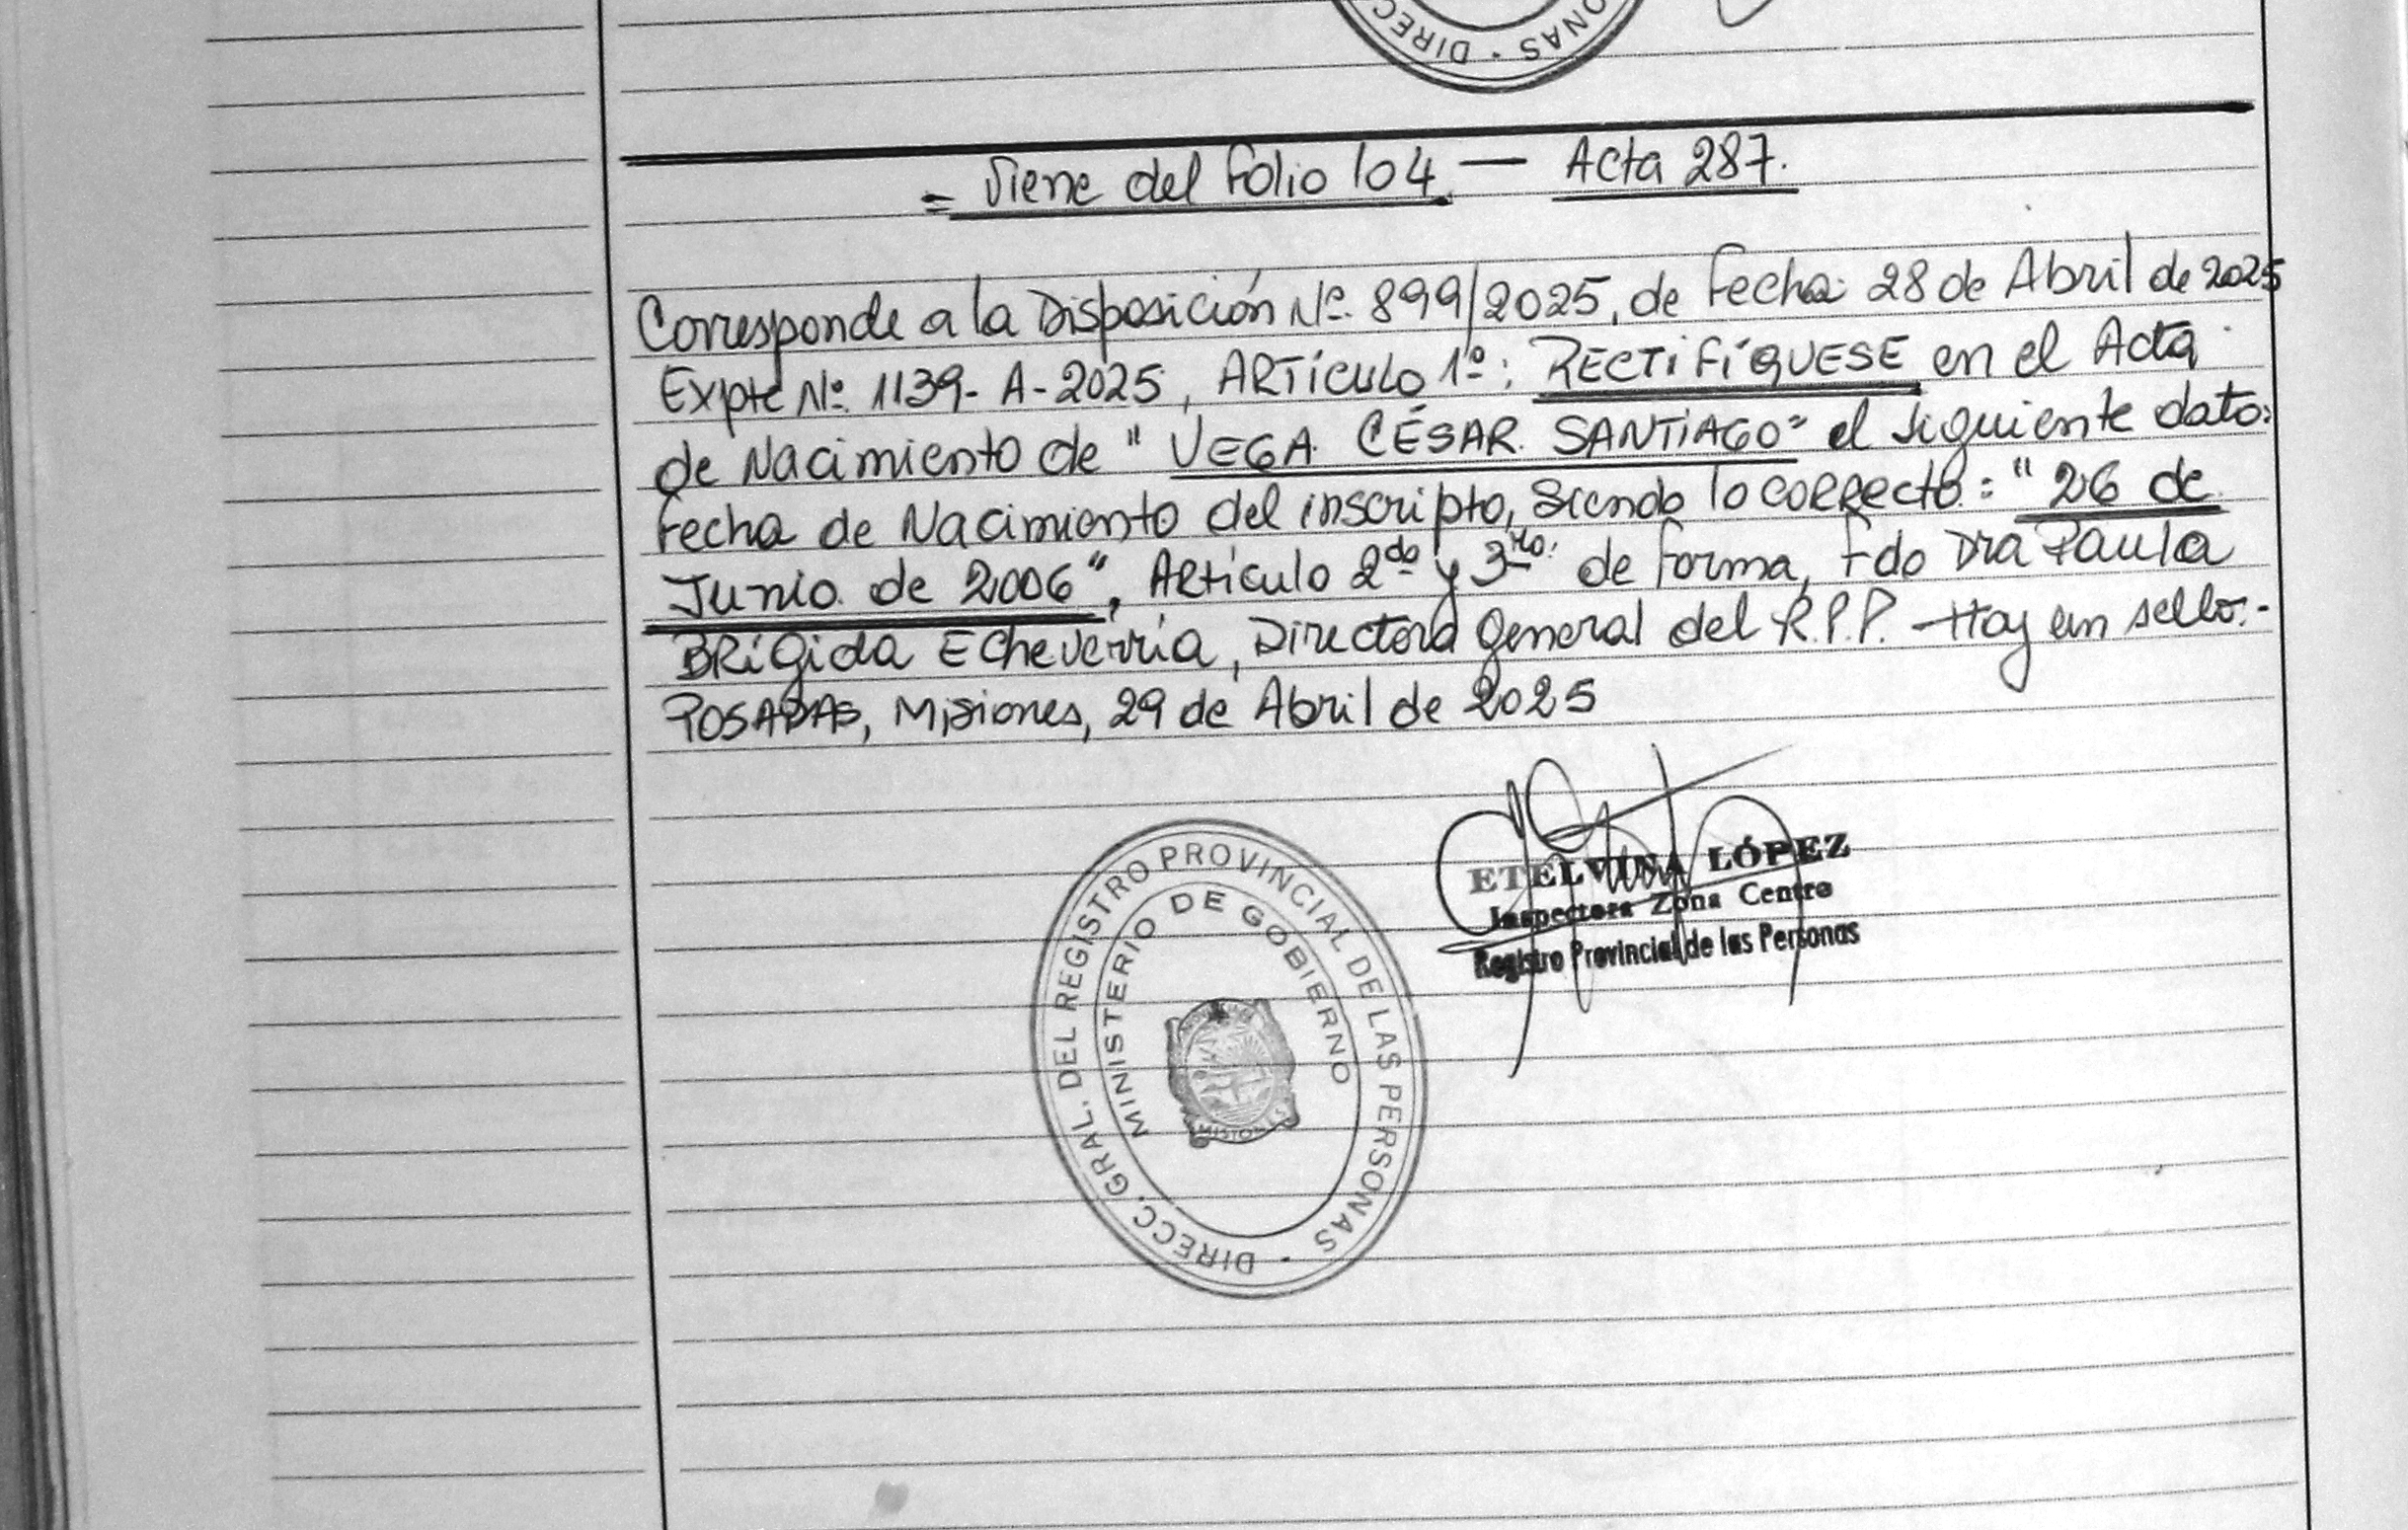 DIRECC
ONAS
= Viene del Folio 104 — Acta 287.
Corresponde a la Disposición Nº 899/2025, de Fecha: 28 de Abril de 2025
Expte Nº 1139-A-2025, ARTículo 1º: RECTIFÍQUESE en el Acta
de Nacimiento de "VEGA CÉSAR SANTIAGO" el siguiente dato:
Fecha de Nacimiento del inscripto, siendo lo correcto: "26 de
Junio de 2006", Artículo 2do y 3ro de forma, Fdo Dra Paula
BRígida Echeverría, Directora General del R.P.P. - Hay un sello.-
POSADAS, Misiones, 29 de Abril de 2025
ETELVINA LÓPEZ
Inspectora Zona Centro
Registro Provincial de las Personas
DIRECC. GRAL. DEL REGISTRO PROVINCIAL DE LAS PERSONAS
MINISTERIO DE GOBIERNO
MISIONES